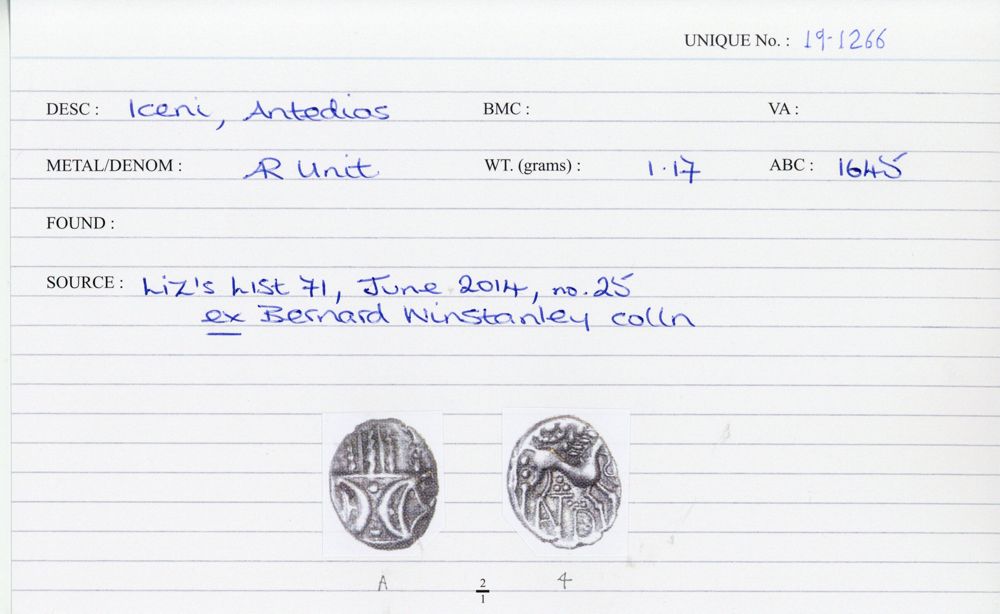 UNIQUE No. : 19-1266
DESC : Iceni, Antedios BMC : VA :
METAL/DENOM : AR Unit WT. (grams) : 1.17 ABC : 1645
FOUND :
SOURCE : Liz's List 71, June 2014, no. 25
ex Bernard Winstanley colln
ATD
A 2/1 4